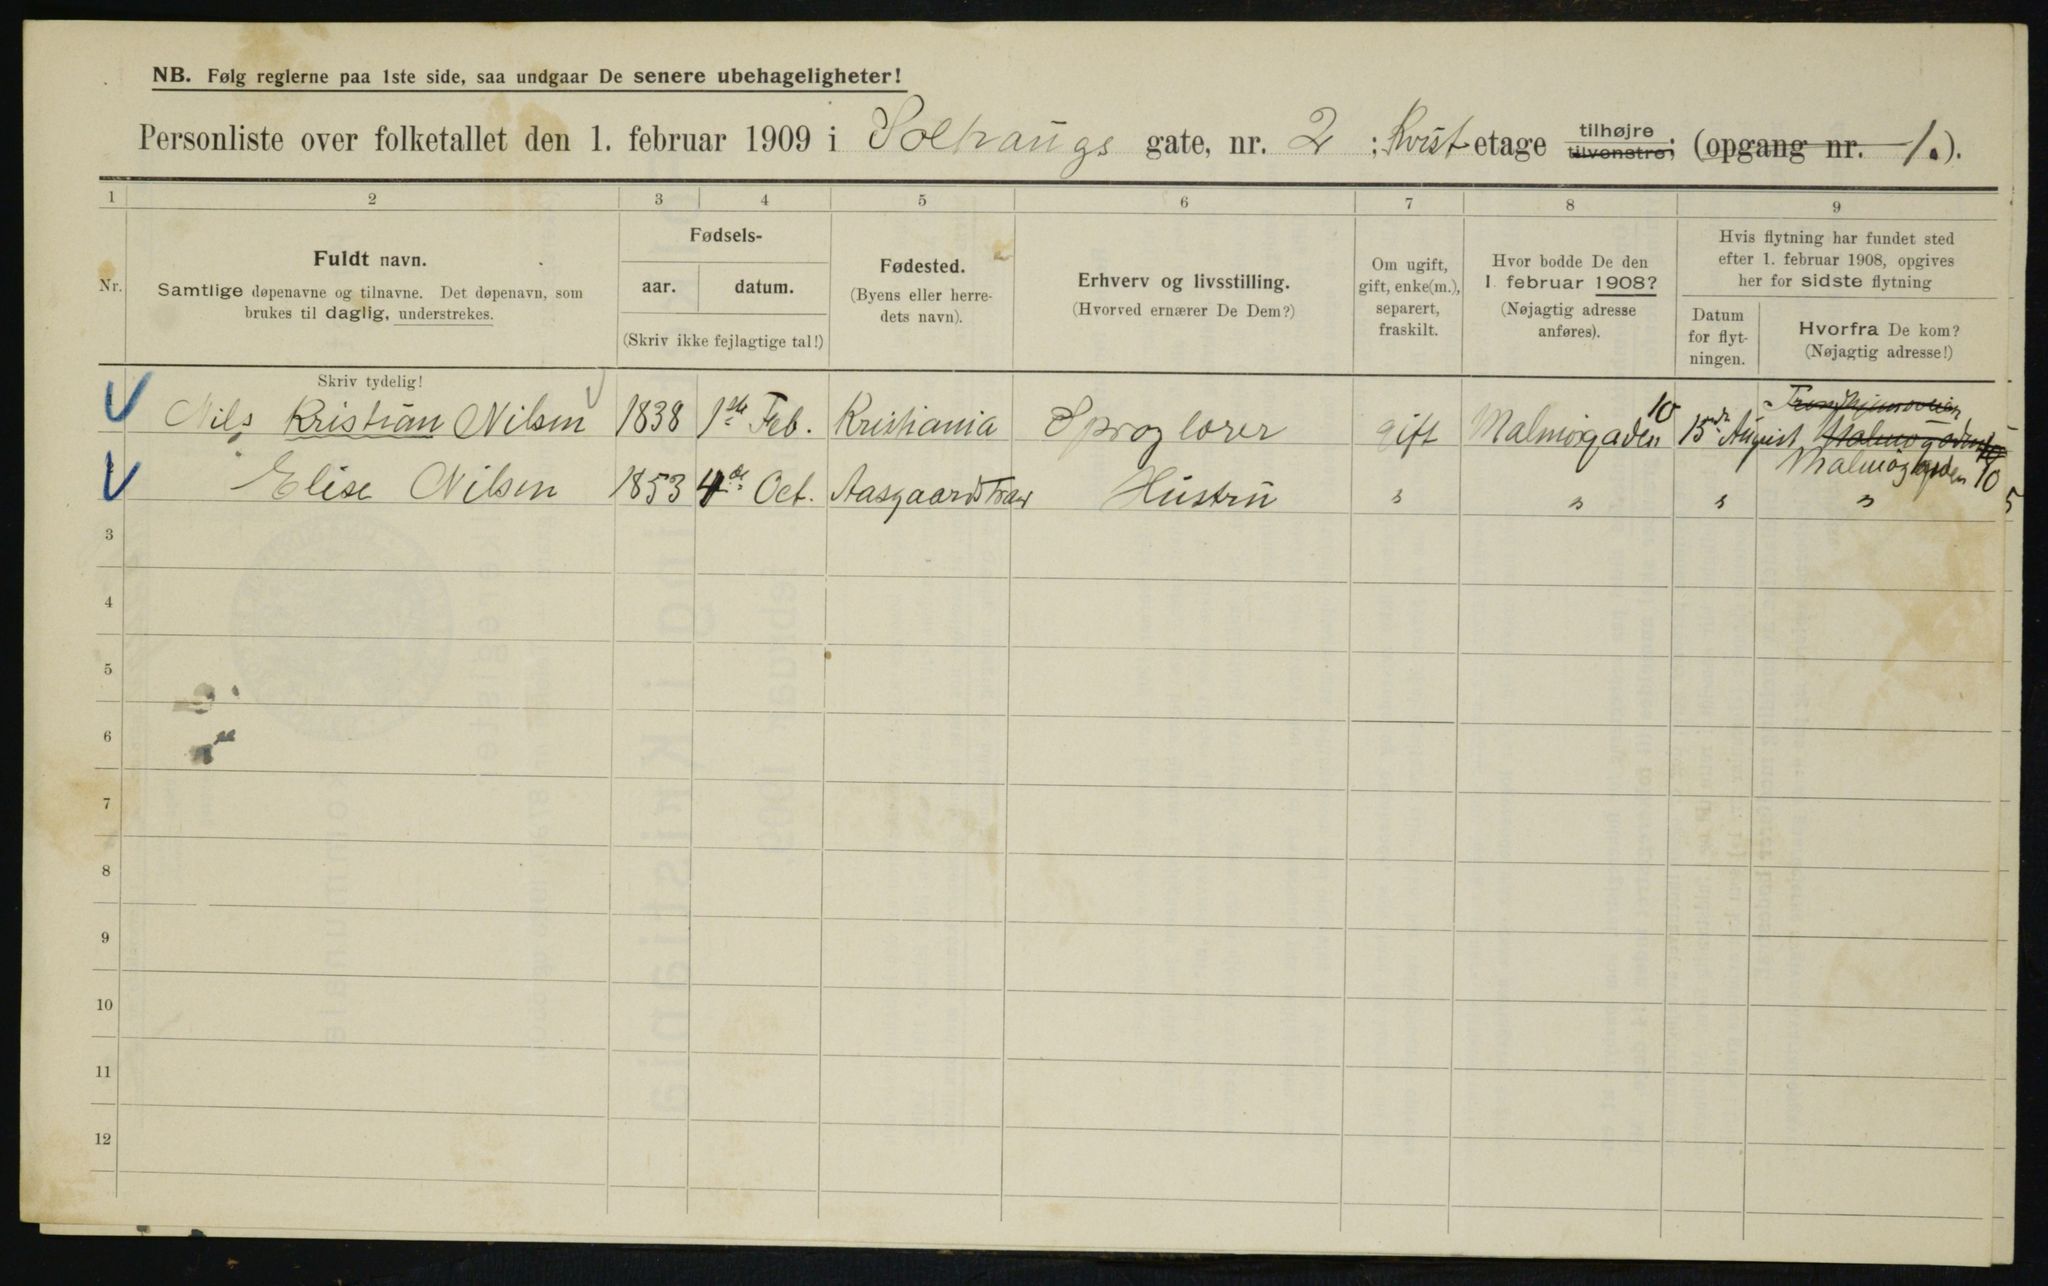 NB. Følg reglerne paa 1ste side, saa undgaar De senere ubehageligheter!
Personliste over folketallet den 1. februar 1909 i Soltraugs gate, nr. 2 ; Kvist etage tilhøjre tilvenstre; (opgang nr. 1.).
1 2 3 4 5 6 7 8 9
Nr.
Fuldt navn.
Samtlige døpenavne og tilnavne. Det døpenavn, som
brukes til daglig, understrekes.
Skriv tydelig!
Fødsels-
aar. datum.
(Skriv ikke fejlagtige tal!)
Fødested.
(Byens eller herre-
dets navn).
Erhverv og livsstilling.
(Hvorved ernærer De Dem?)
Om ugift,
gift, enke(m.),
separert,
fraskilt.
Hvor bodde De den
1. februar 1908?
(Nøjagtig adresse
anføres).
Hvis flytning har fundet sted
efter 1. februar 1908, opgives
her for sidste flytning
Datum
for flyt-
ningen.
Hvorfra De kom?
(Nøjagtig adresse!)
Nils Kristian Nilsen 1838 1ste Feb. Kristiania Sproglærer gift Malmøgaden 10 15de August Trondhjemsveien Malmøgaden 10
Malmøgaden 10
Elise Nilsen 1853 4de Oct. Aasgaardstran Hustru " " " "
3
4
5
6
7
8
9
10
11
12